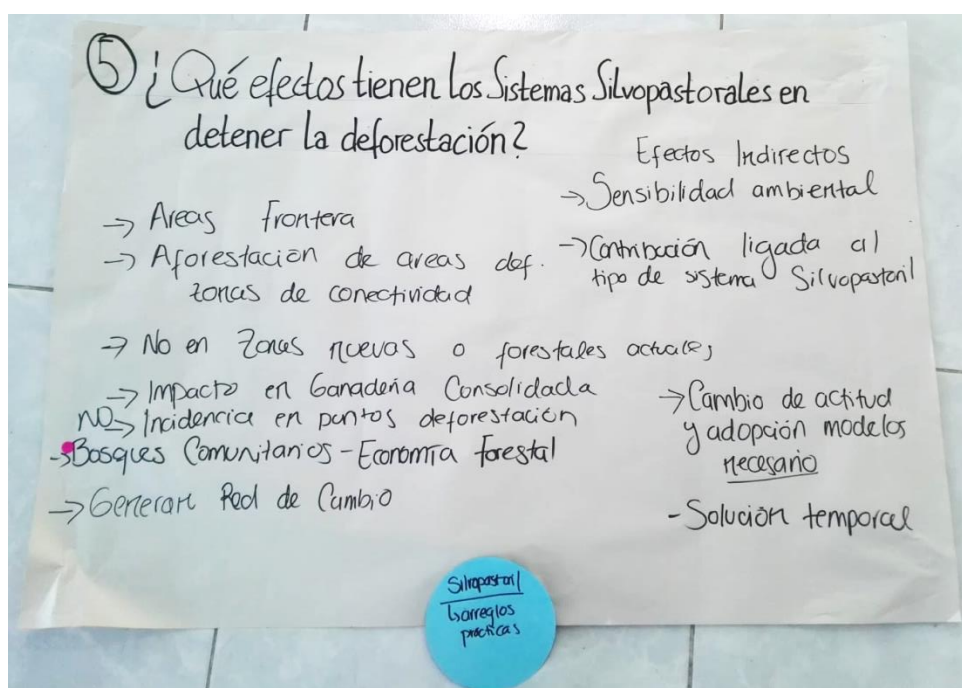 ⑤ ¿Qué efectos tienen los Sistemas Silvopastorales en
detener la deforestación?
→ Areas frontera
→ Aforestación de areas def.
zonas de conectividad
→ No en zonas nuevas o forestales actuales
→ Impacto en Ganadería Consolidada
NO→ Incidencia en puntos deforestación
→ Bosques Comunitarios - Economía forestal
→ Generar Red de Cambio
Efectos Indirectos
→ Sensibilidad ambiental
→ Contribución ligada al
tipo de sistema Silvopastoril
→ Cambio de actitud
y adopción modelos
necesario
- Solución temporal
Silvopastoril
↳ arreglos
prácticas